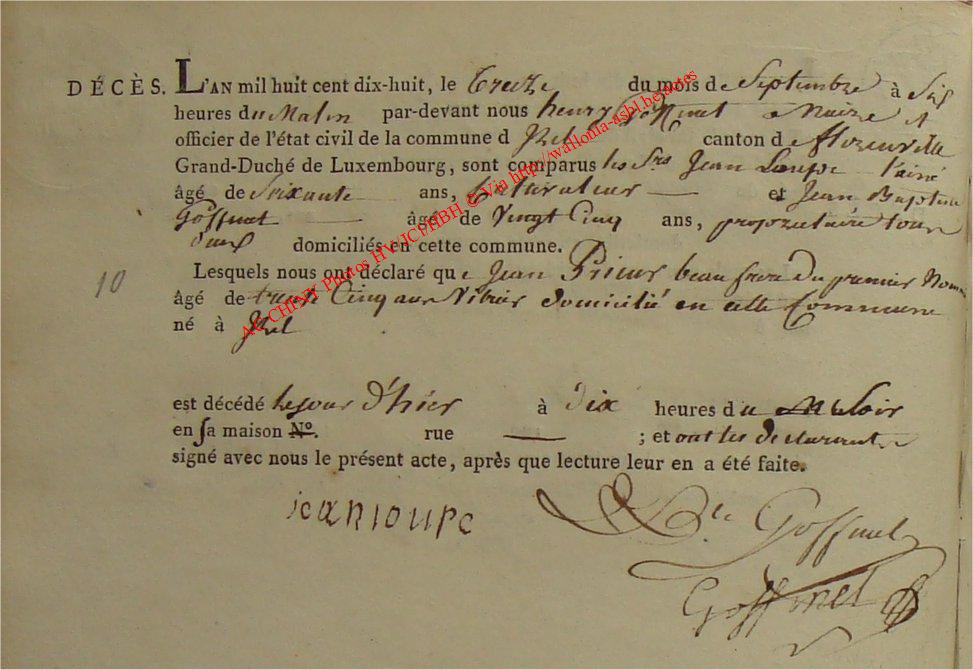 DÉCÈS. L'AN mil huit cent dix-huit, le treize du mois de Septembre à Six
heures du Matin par-devant nous henry Goffinet Maire et
officier de l'état civil de la commune d'Izel canton de florenville
Grand-Duché de Luxembourg, sont comparus les Srs Jean Loupe l'ainé
âgé de Soixante ans, Cultivateur et Jean Baptiste
Goffinet âgé de Vingt Cinq ans, propriétaire tous
deux domiciliés en cette commune.
10 Lesquels nous ont déclaré que Jean Prieur beau frere du premier Nommé
âgé de trente Cinq ans Vitrier domicilié en cette Commune
né à Izel
est décédé le jour d'hier à dix heures du Soir
en sa maison N°. rue ; et ont les déclarants
signé avec nous le présent acte, après que lecture leur en a été faite.
jean loupe
Bte Goffinet
Goffinet
ARCHIVES Photos HV/JCL/HBH © Via http://wallonia-asbl.be/actes